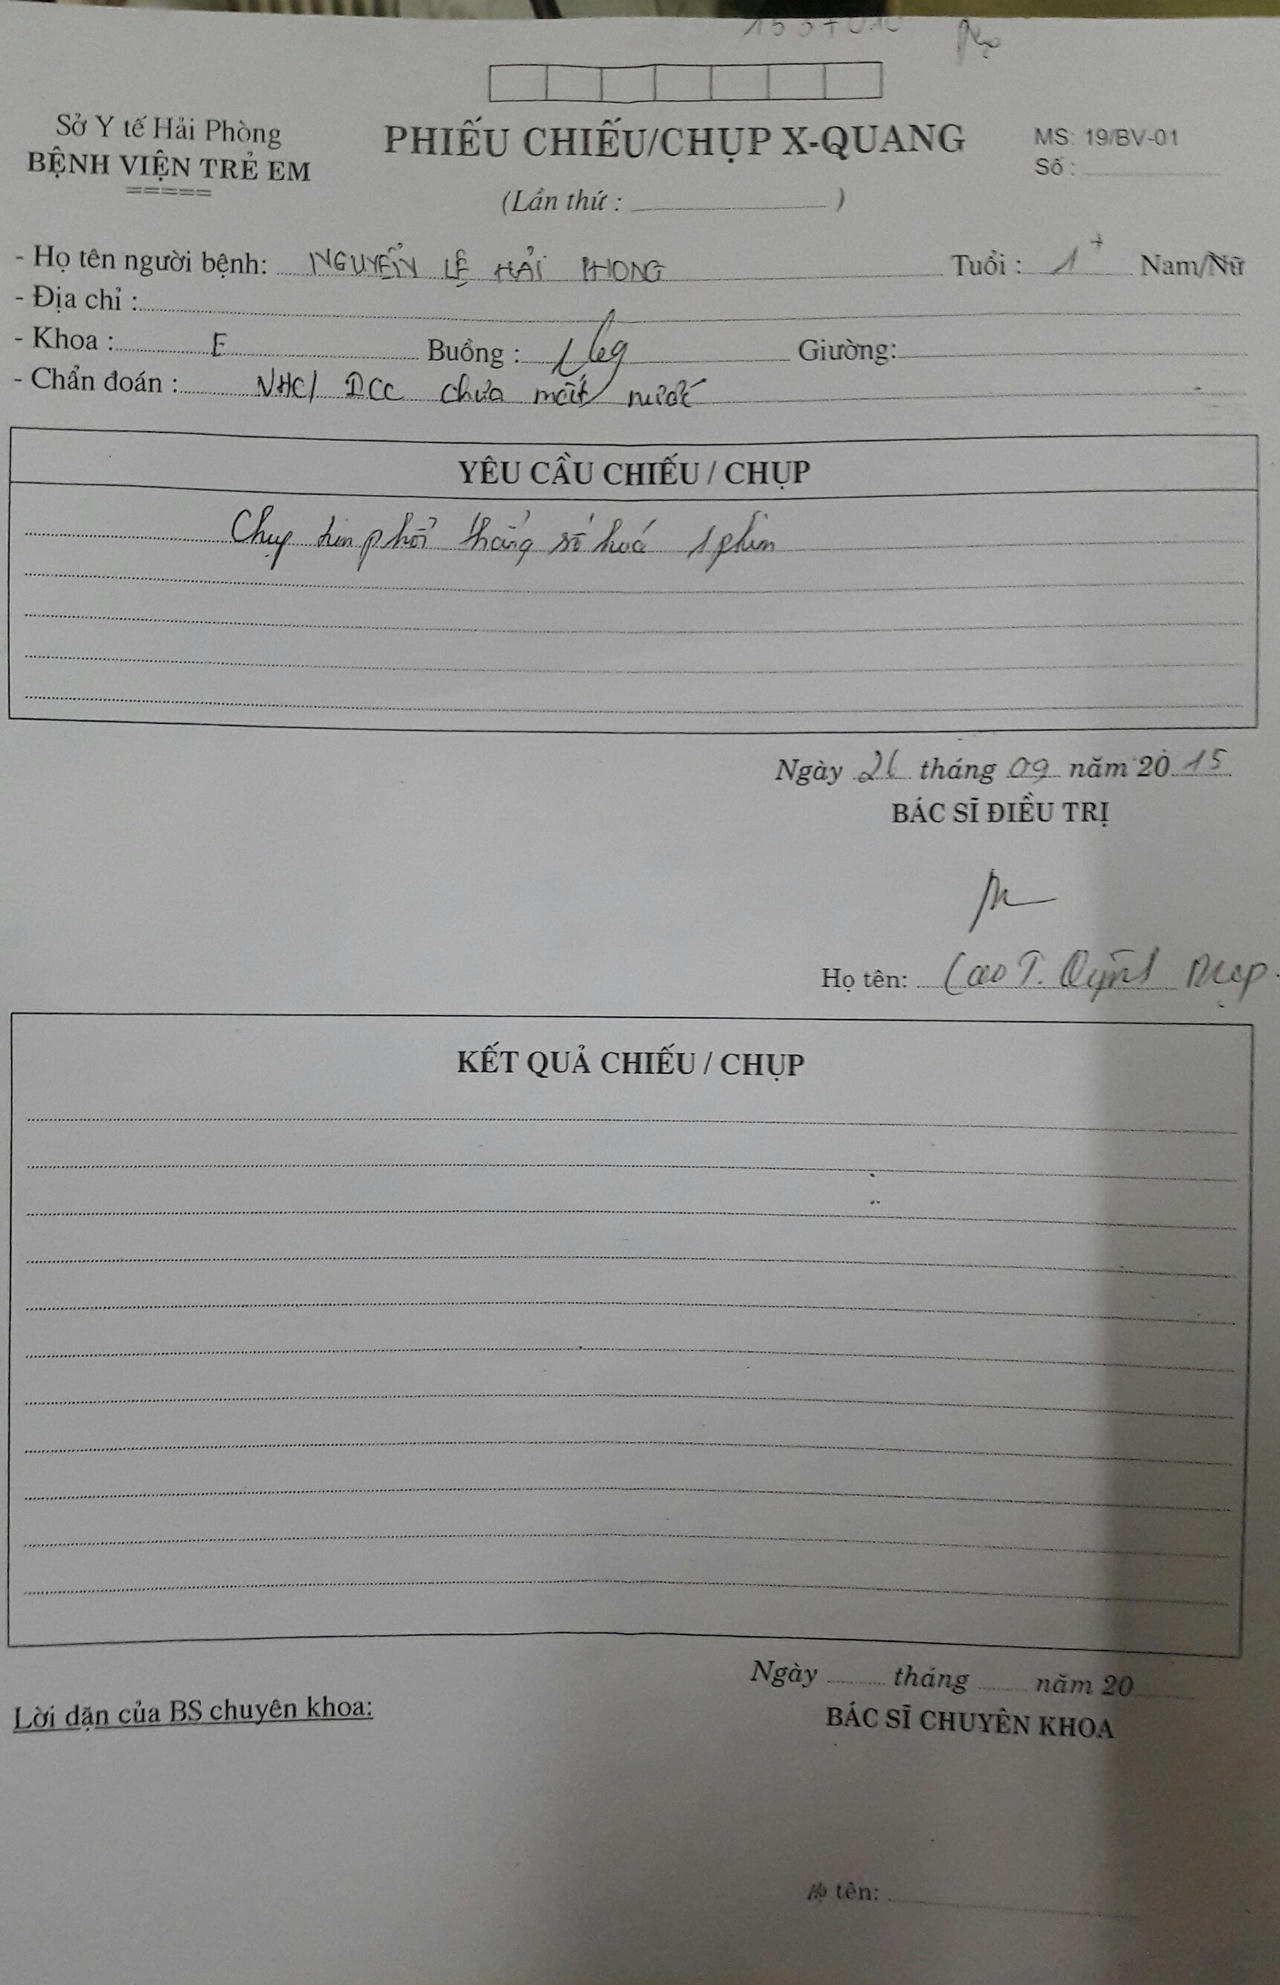 Sở Y tế Hải Phòng
BỆNH VIỆN TRẺ EM
=====
PHIẾU CHIẾU/CHỤP X-QUANG
(Lần thứ : )
MS: 19/BV-01
Số :
- Họ tên người bệnh: NGUYỄN LÊ HẢI PHONG Tuổi : 1+ Nam/Nữ
- Địa chỉ :
- Khoa : E Buồng : Giường:
- Chẩn đoán : chưa mất nước
YÊU CẦU CHIẾU / CHỤP
Chụp tim phổi thẳng số hoá 1 phim
Ngày 26 tháng 09 năm 2015
BÁC SĨ ĐIỀU TRỊ
Họ tên: Cao T. Quỳnh
KẾT QUẢ CHIẾU / CHỤP
Ngày tháng năm 20
Lời dặn của BS chuyên khoa:
BÁC SĨ CHUYÊN KHOA
Họ tên: